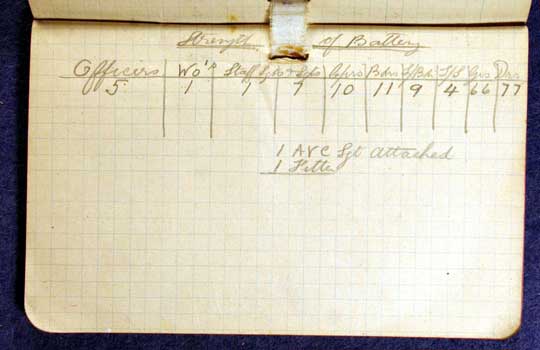 Strength of Battery
Officers Wo's Staff Sgts & Sgts Cprs Bdrs A/Bdr S/S Grs Drs
5 1 7 7 10 11 9 4 66 77
1 AVC Sgt attached
1 Fitter